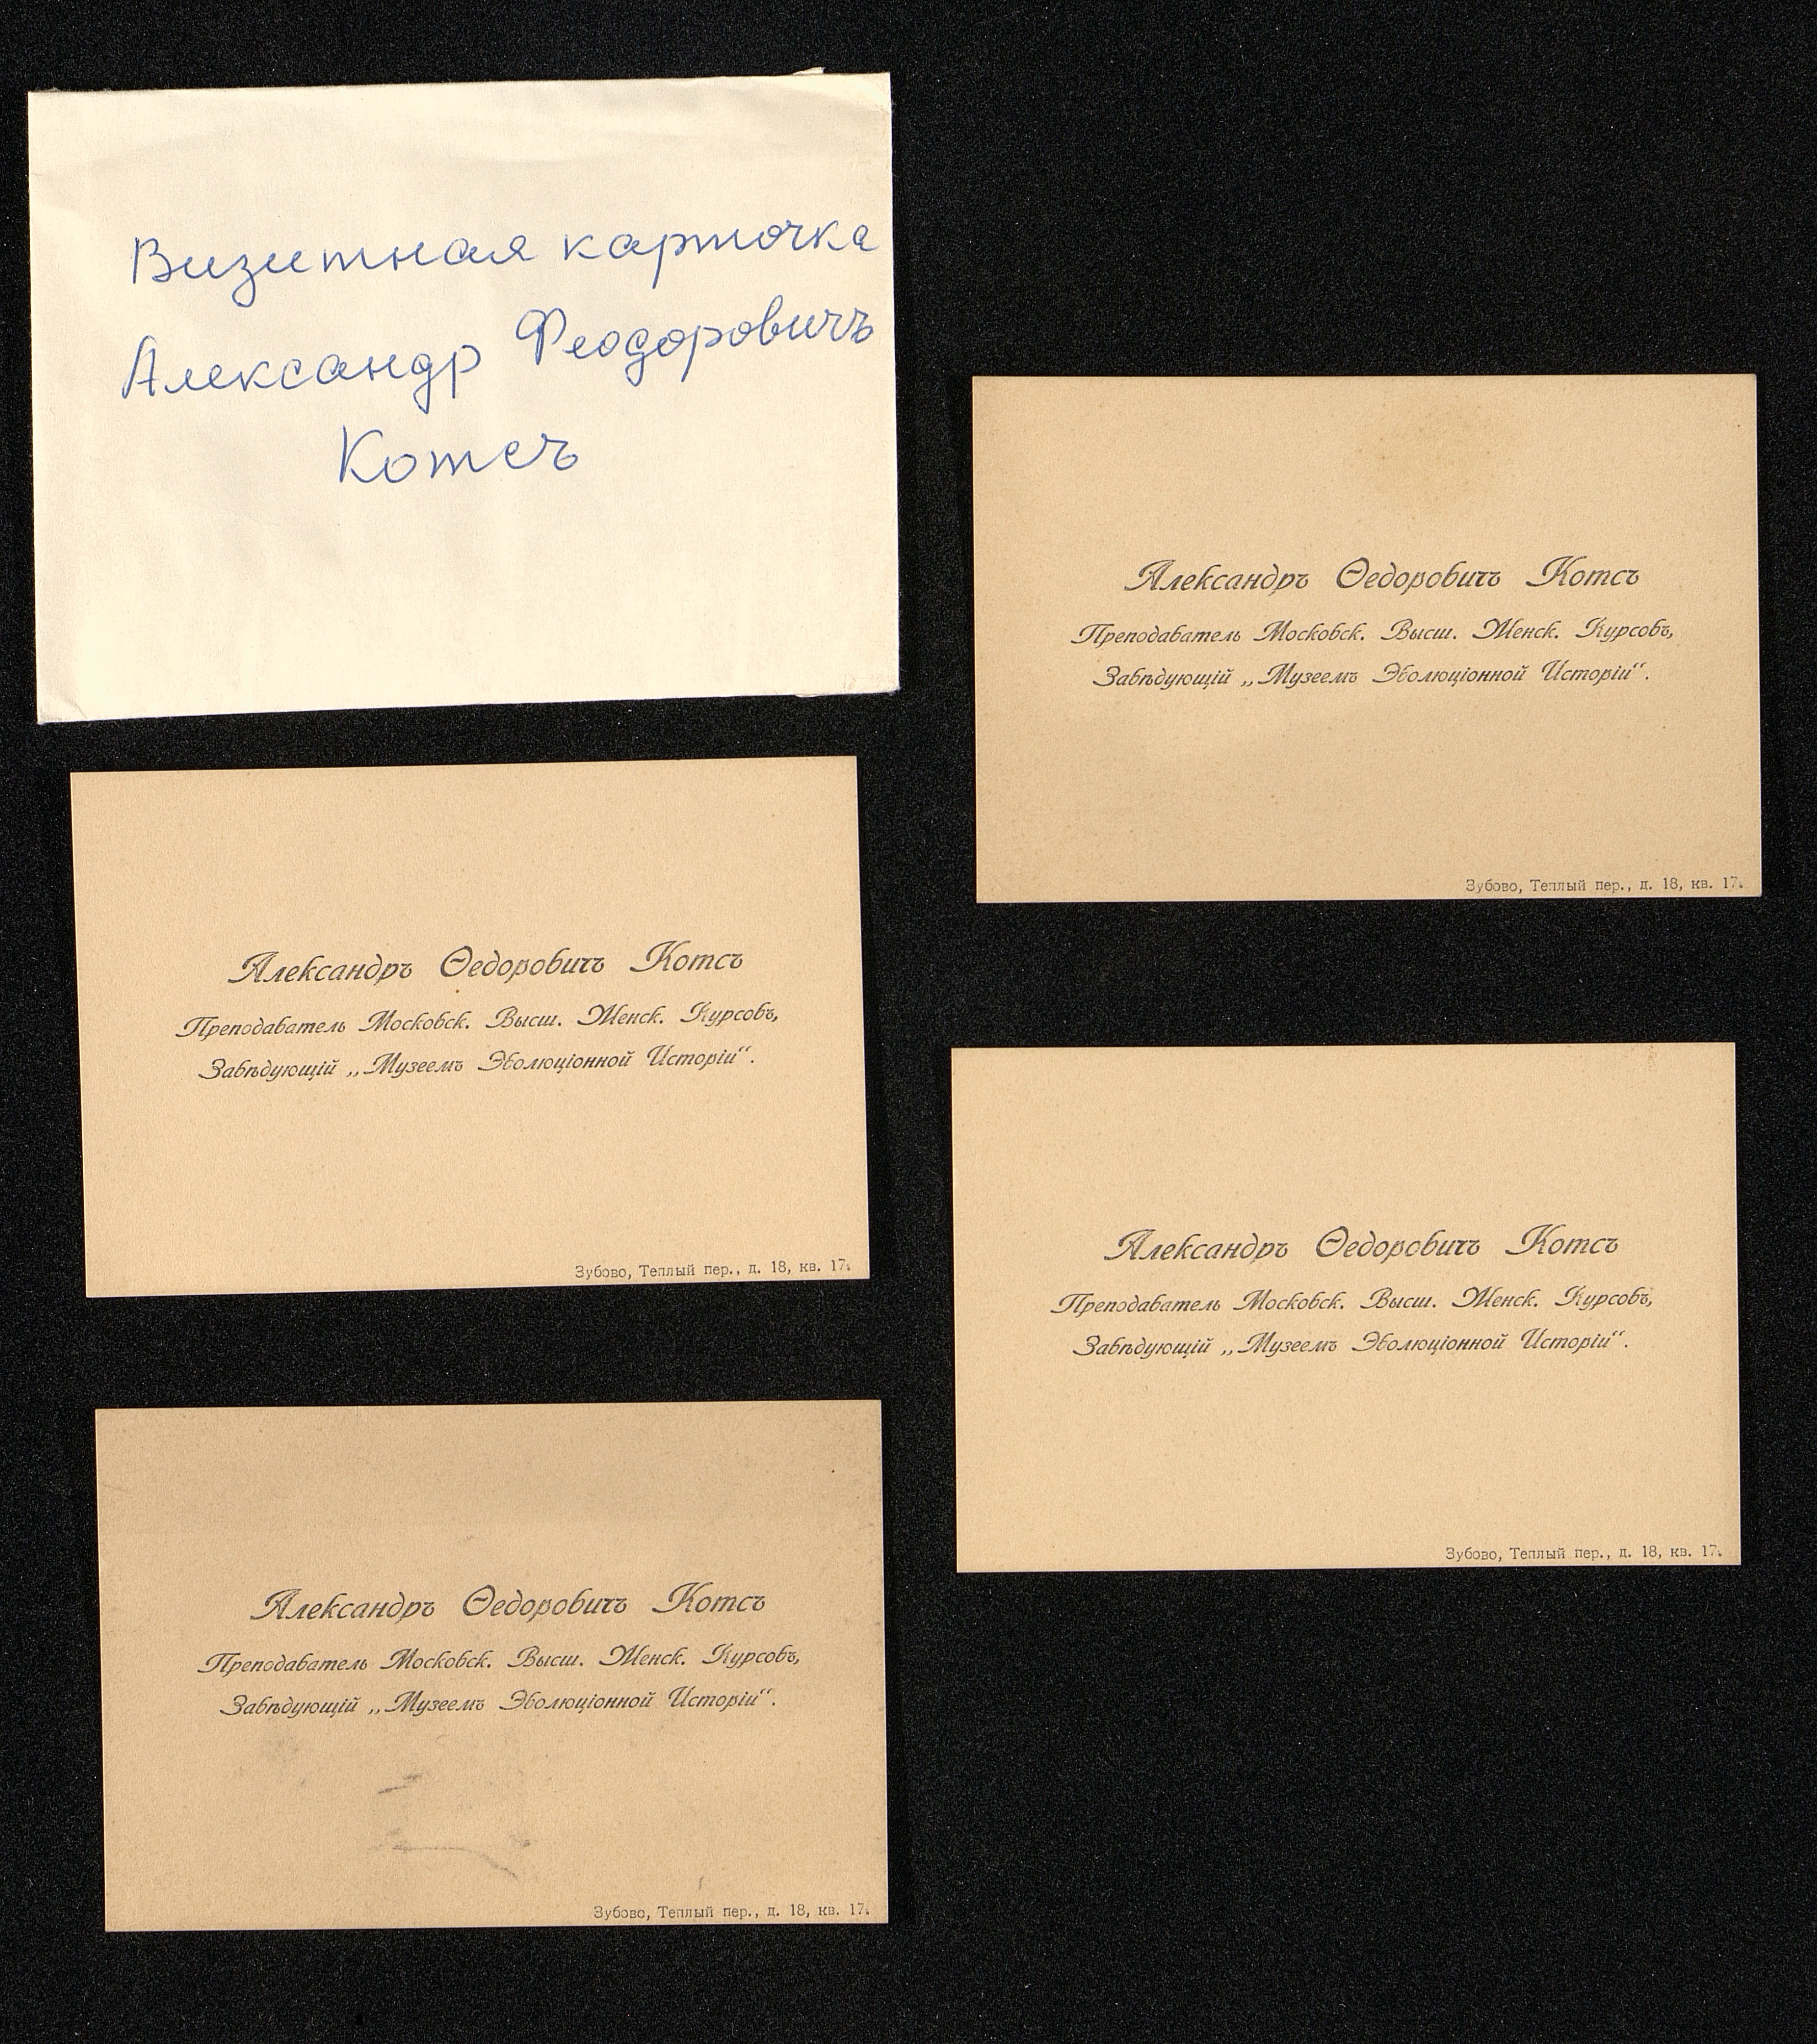 Визитная карточка
Александр Феодоровичъ
Котсъ
Александръ Ѳедоровичъ Котсъ
Преподаватель Московск. Высш. Женск. Курсовъ,
Завѣдующій „Музеемъ Эволюціонной Исторіи“.
Зубово, Теплый пер., д. 18, кв. 17.
Александръ Ѳедоровичъ Котсъ
Преподаватель Московск. Высш. Женск. Курсовъ,
Завѣдующій „Музеемъ Эволюціонной Исторіи“.
Зубово, Теплый пер., д. 18, кв. 17.
Александръ Ѳедоровичъ Котсъ
Преподаватель Московск. Высш. Женск. Курсовъ,
Завѣдующій „Музеемъ Эволюціонной Исторіи“.
Зубово, Теплый пер., д. 18, кв. 17.
Александръ Ѳедоровичъ Котсъ
Преподаватель Московск. Высш. Женск. Курсовъ,
Завѣдующій „Музеемъ Эволюціонной Исторіи“.
Зубово, Теплый пер., д. 18, кв. 17.